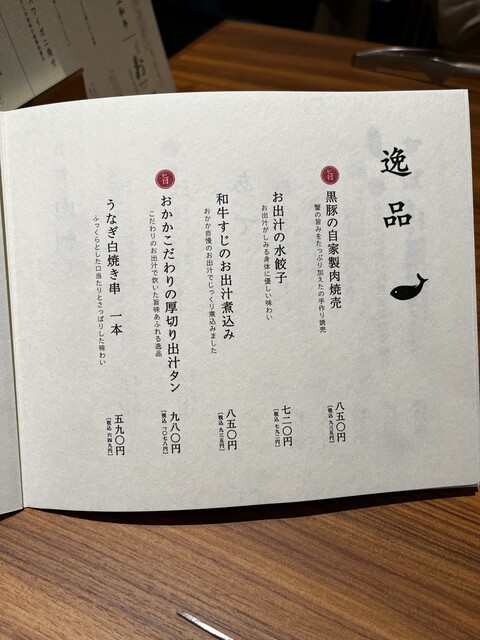 逸品
旨
黒豚の自家製肉焼売
蟹の旨みをたっぷり加えたの手作り焼売
八五〇円
【税込 九三五円】
お出汁の水餃子
お出汁がしみる身体に優しい味わい
七二〇円
【税込 七九二円】
和牛すじのお出汁煮込み
おかか自慢のお出汁でじっくり煮込みました
八五〇円
【税込 九三五円】
旨
おかかこだわりの厚切り出汁タン
こだわりのお出汁で炊いた旨味あふれる逸品
九八〇円
【税込 一〇七八円】
うなぎ白焼き串 一本
ふっくらとした口当たりとさっぱりした味わい
五九〇円
【税込 六四九円】